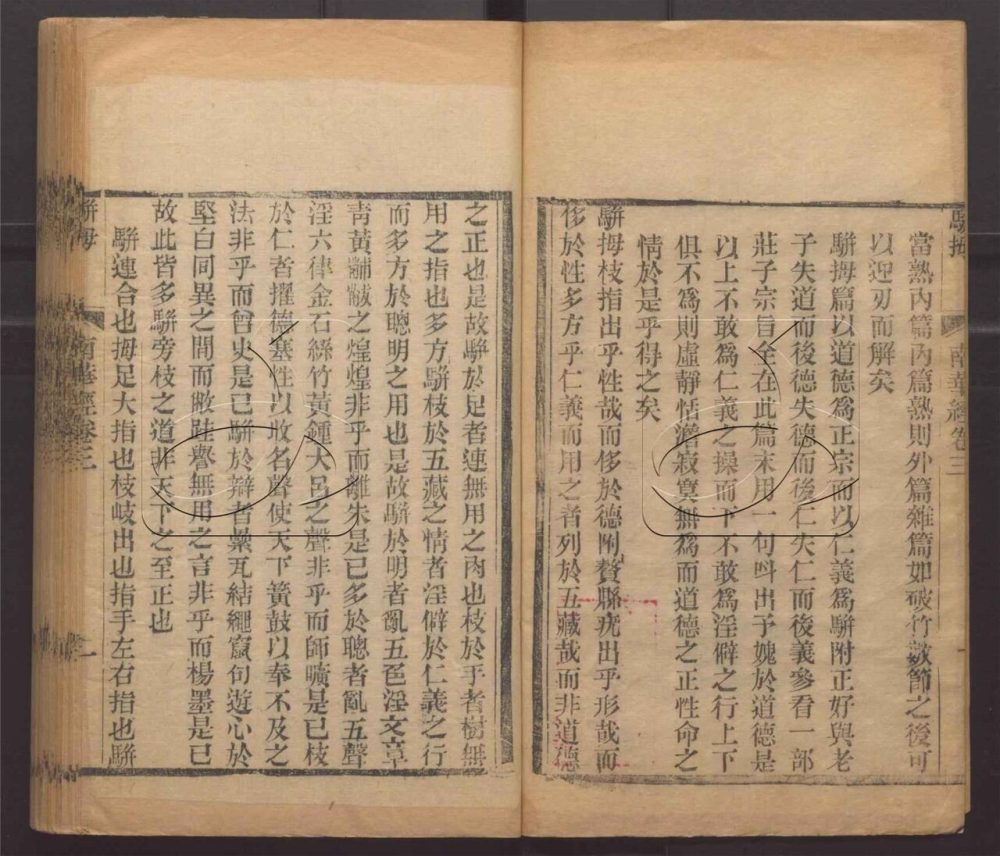 駢拇
南華經卷三
一
當熟內篇內篇熟則外篇雜篇如破竹數節之後可
以迎刃而解矣
駢拇篇以道德爲正宗而以仁義爲駢附正好與老
子失道而後德失德而後仁失仁而後義參看一部
莊子宗旨全在此篇末用一句叫出予媿於道德是
以上不敢爲仁義之操而下不敢爲淫僻之行上下
俱不爲則虛靜恬澹寂寞無爲而道德之正性命之
情於是乎得之矣
駢拇枝指出乎性哉而侈於德附贅縣疣出乎形哉而
侈於性多方乎仁義而用之者列於五藏哉而非道德
之正也是故駢於足者連無用之肉也枝於手者樹無
用之指也多方駢枝於五藏之情者淫僻於仁義之行
而多方於聰明之用也是故駢於明者亂五色淫文章
靑黃黼黻之煌煌非乎而離朱是已多於聰者亂五聲
淫六律金石絲竹黃鍾大呂之聲非乎而師曠是已枝
於仁者擢德塞性以收名聲使天下簧鼓以奉不及之
法非乎而曾史是已駢於辯者纍瓦結繩竄句遊心於
堅白同異之間而敝跬譽無用之言非乎而楊墨是已
故此皆多駢旁枝之道非天下之至正也
駢連合也拇足大指也枝岐出也指手左右指也駢
駢拇
南華經卷三
一